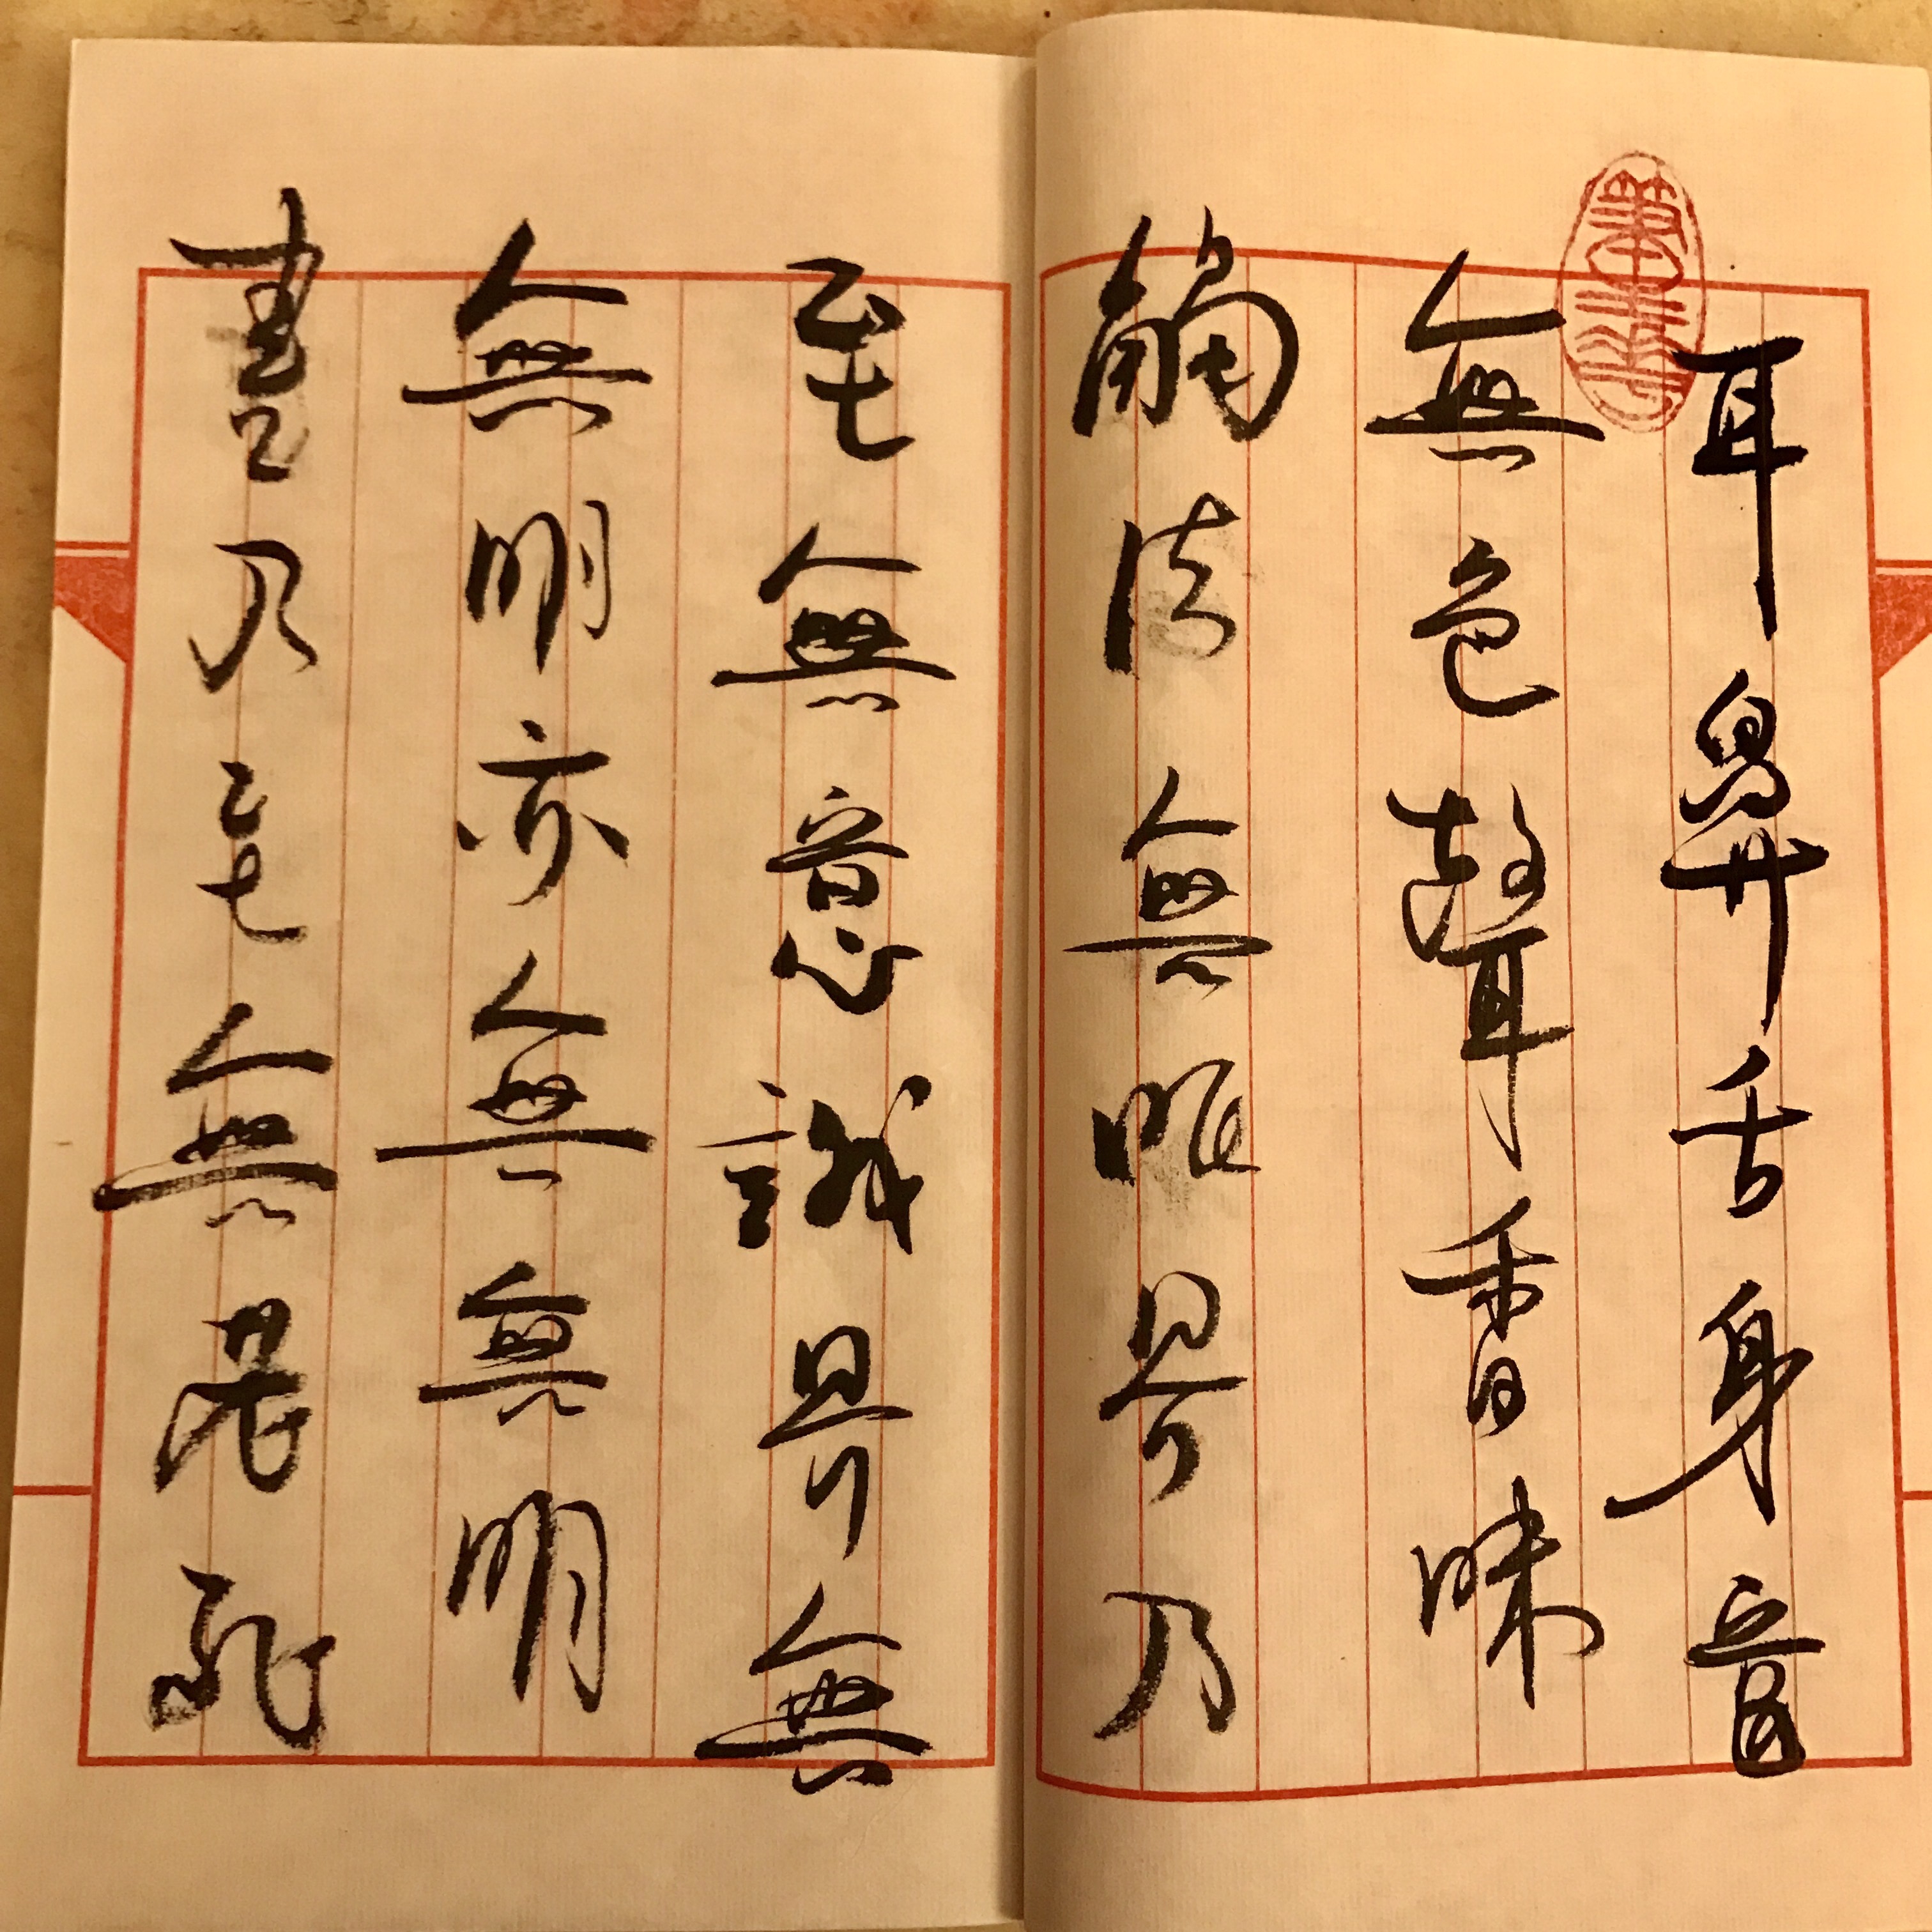 耳鼻舌身意
無色聲香味
觸法無眼界乃
至無意識界無
無明亦無無明
盡乃至無老死